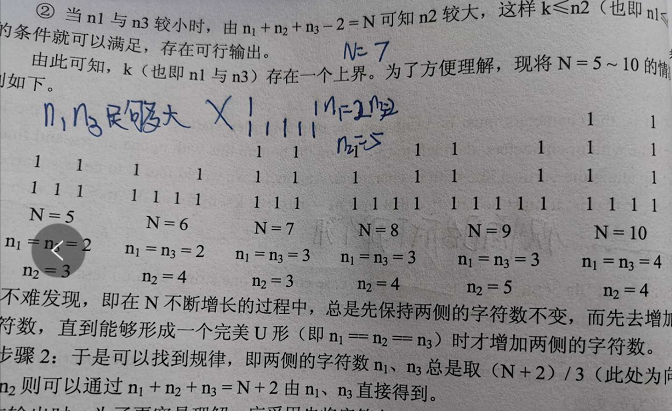 ② 当 n1 与 n3 较小时，由 n₁ + n₂ + n₃ − 2 = N 可知 n2 较大，这样 k ≤ n2（也即 n1≤
的条件就可以满足，存在可行输出。
N = 7
由此可知，k（也即 n1 与 n3）存在一个上界。为了方便理解，现将 N = 5 ~ 10 的情
如下。
n₁ n₃ 足够大 X 1 1 n₁=2 n₃=2 1 1
1 1 1 1 1 n₂=5
1 1 1 1 1 1 1 1
1 1 1 1 1 1 1 1 1 1 1 1
1 1 1 1 1 1 1 1 1 1 1 1 1 1 1 1 1 1 1 1 1 1 1
N = 5 N = 6 N = 7 N = 8 N = 9 N = 10
n₁ = n₃ = 2 n₁ = n₃ = 2 n₁ = n₃ = 3 n₁ = n₃ = 3 n₁ = n₃ = 3 n₁ = n₃ = 4
n₂ = 3 n₂ = 4 n₂ = 3 n₂ = 4 n₂ = 5 n₂ = 4
不难发现，即在 N 不断增长的过程中，总是先保持两侧的字符数不变，而先去增加
符数，直到能够形成一个完美 U 形（即 n₁ == n₂ == n₃）时才增加两侧的字符数。
步骤 2：于是可以找到规律，即两侧的字符数 n₁、n₃ 总是取（N + 2）/ 3（此处为向
n₂ 则可以通过 n₁ + n₂ + n₃ = N + 2 由 n₁、n₃ 直接得到。